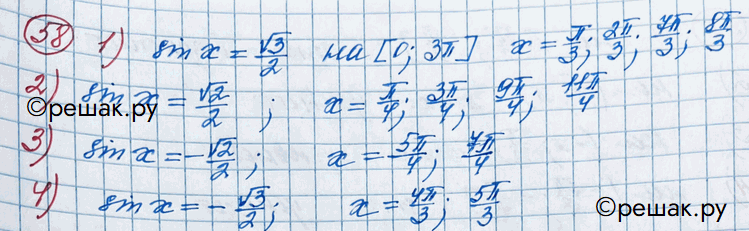 58 1) sin x = √3/2 на [0; 3π] x = π/3; 2π/3; 7π/3; 8π/3
2) sin x = √2/2; x = π/4; 3π/4; 9π/4; 11π/4
©решак.ру
3) sin x = -√2/2; x = 5π/4; 7π/4
4) sin x = -√3/2; x = 4π/3; 5π/3
©решак.ру